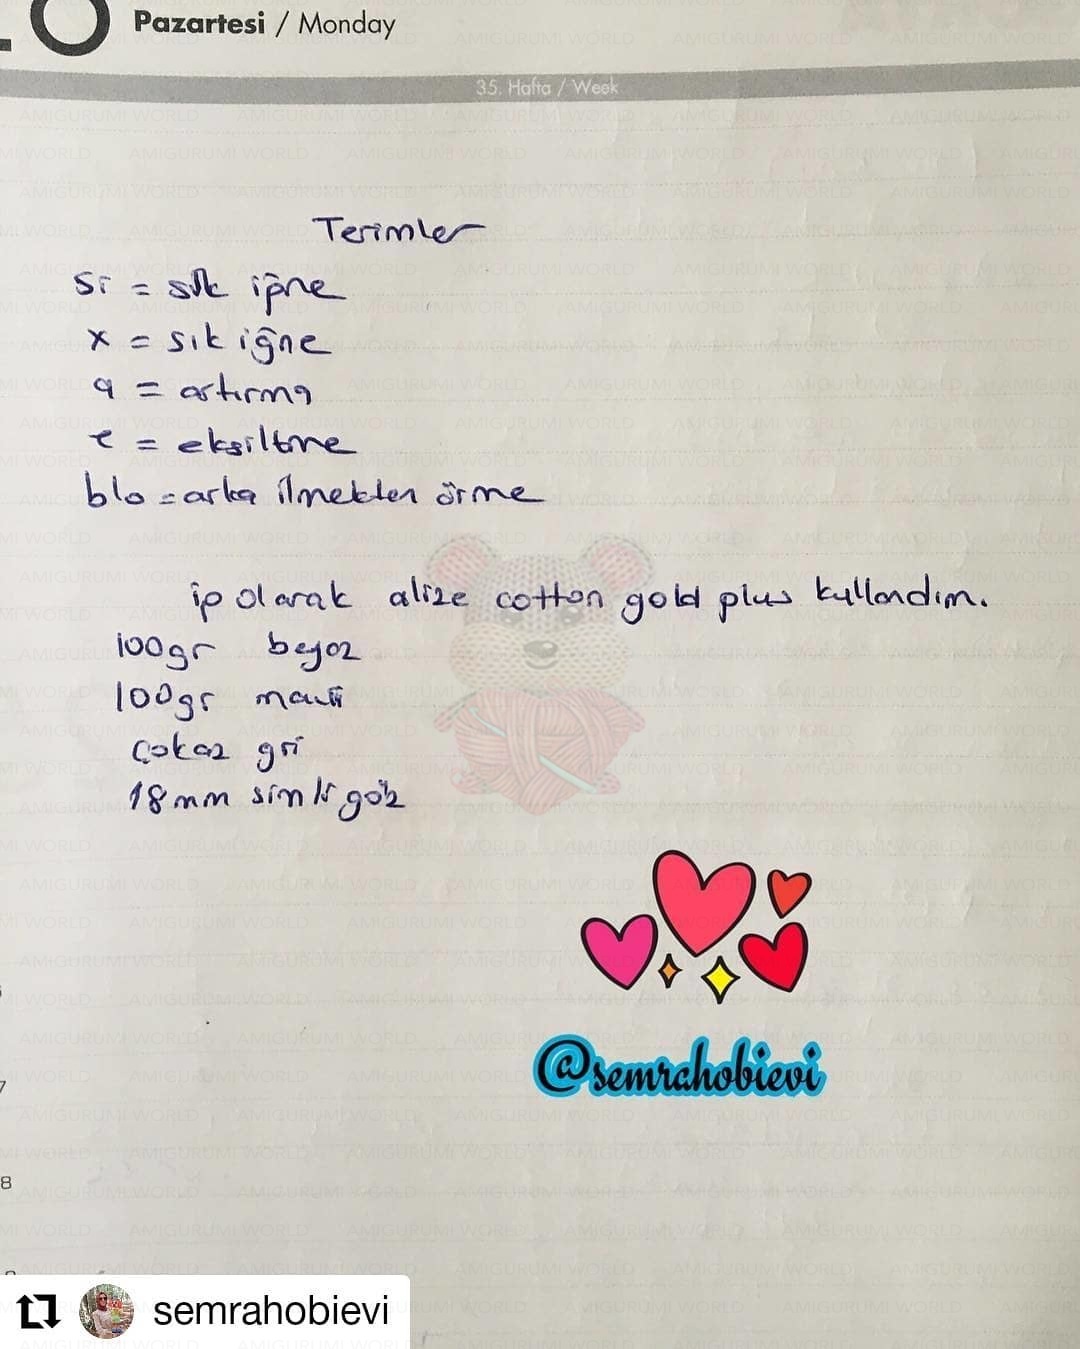 Pazartesi / Monday
35. Hafta / Week
Terimler
si = sık iğne
x = sık iğne
a = artırma
e = eksiltme
blo = arka ilmekten örme
ip olarak alize cotton gold plus kullandım.
100gr beyaz
100gr mavi
Çokaz gri
18mm simli göz
@semrahobievi
7
8
semrahobievi
AMIGURUMI WORLD